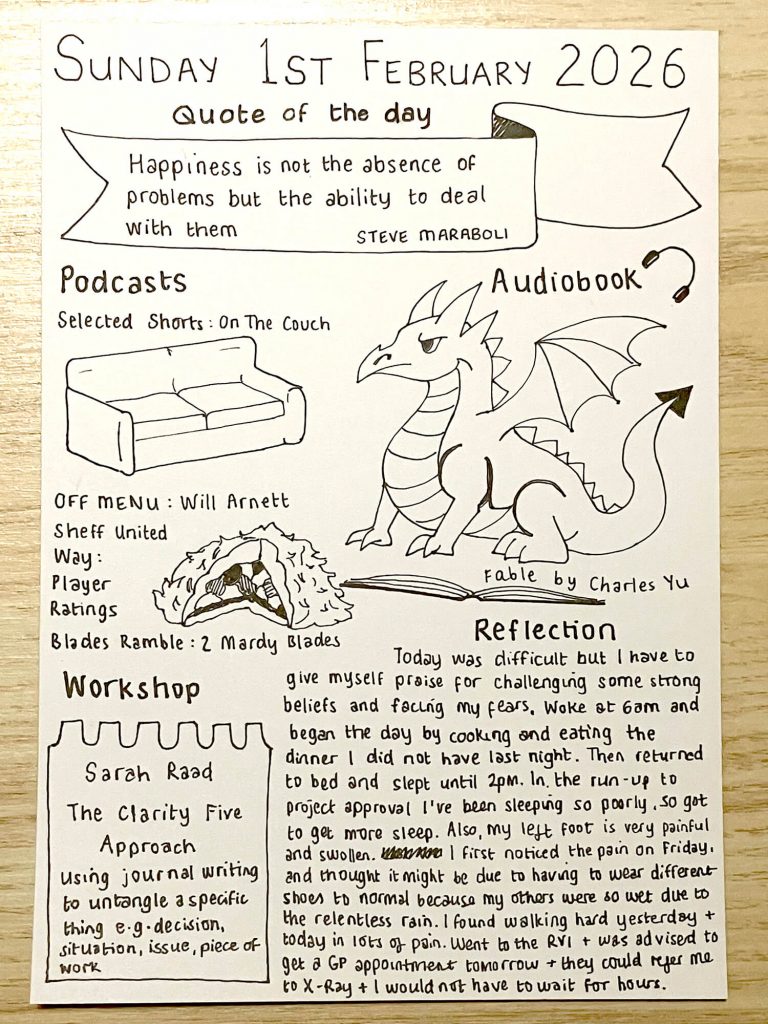 SUNDAY 1ST FEBRUARY 2026
Quote of the day
Happiness is not the absence of
problems but the ability to deal
with them
STEVE MARABOLI
Podcasts
Selected Shorts: On The Couch
OFF MENU: Will Arnett
Sheff United
Way:
Player
Ratings
Blades Ramble: 2 Mardy Blades
Audiobook
Fable by Charles Yu
Workshop
Sarah Raad
The Clarity Five
Approach
Using journal writing
to untangle a specific
thing e.g. decision,
situation, issue, piece of
work
Reflection
Today was difficult but I have to
give myself praise for challenging some strong
beliefs and facing my fears. Woke at 6am and
began the day by cooking and eating the
dinner I did not have last night. Then returned
to bed and slept until 2pm. In the run-up to
project approval I've been sleeping so poorly, so got
to get more sleep. Also, my left foot is very painful
and swollen. I first noticed the pain on Friday,
and thought it might be due to having to wear different
shoes to normal because my others were so wet due to
the relentless rain. I found walking hard yesterday +
today in lots of pain. Went to the RVI + was advised to
get a GP appointment tomorrow + they could refer me
to X-Ray + I would not have to wait for hours.